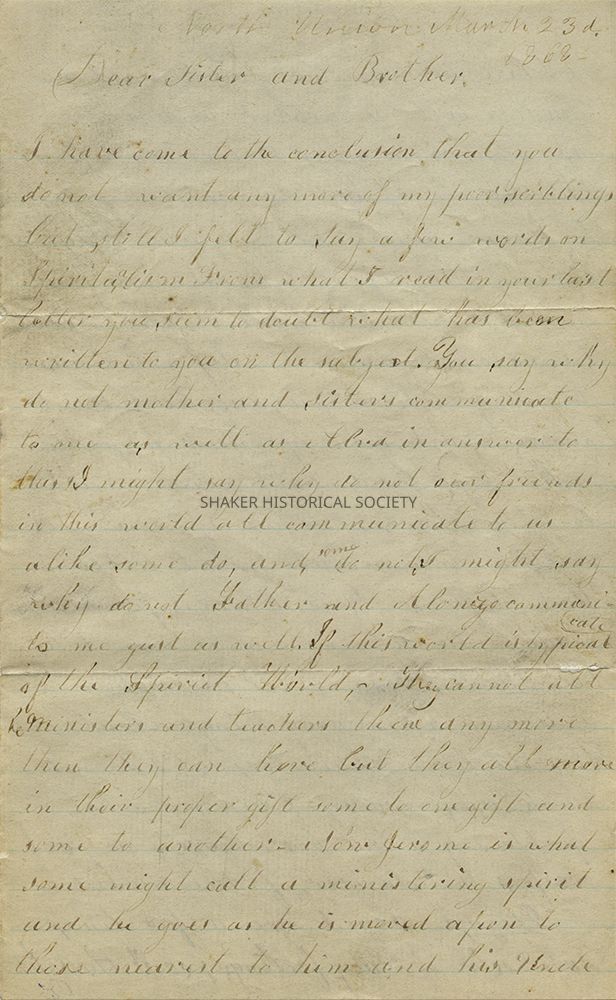 North Union March 23d.
1868
Dear Sister and Brother.
I have come to the conclusion that you
do not want any more of my poor scriblings
but still I felt to say a few words on
Spiritalism From what I read in your last
letter you seem to doubt what has been
written to you on the subject. You say why
do not mother and sisters communicate
to me as well as Alva in answer to
this I might say why do not our friends
SHAKER HISTORICAL SOCIETY
in this world all communicate to us
alike some do, and some do not, I might say
why do not Father and Alonzo communi-
cate
to me just as well. If this world is typical
of the Spirit World, They cannot all
be Ministers and teachers there any more
then they can here but they all move
in their proper gift some to one gift and
some to another - Now Jerome is what
some might call a ministering spirit
and he goes as he is moved apon to
those nearest to him and his Uncle